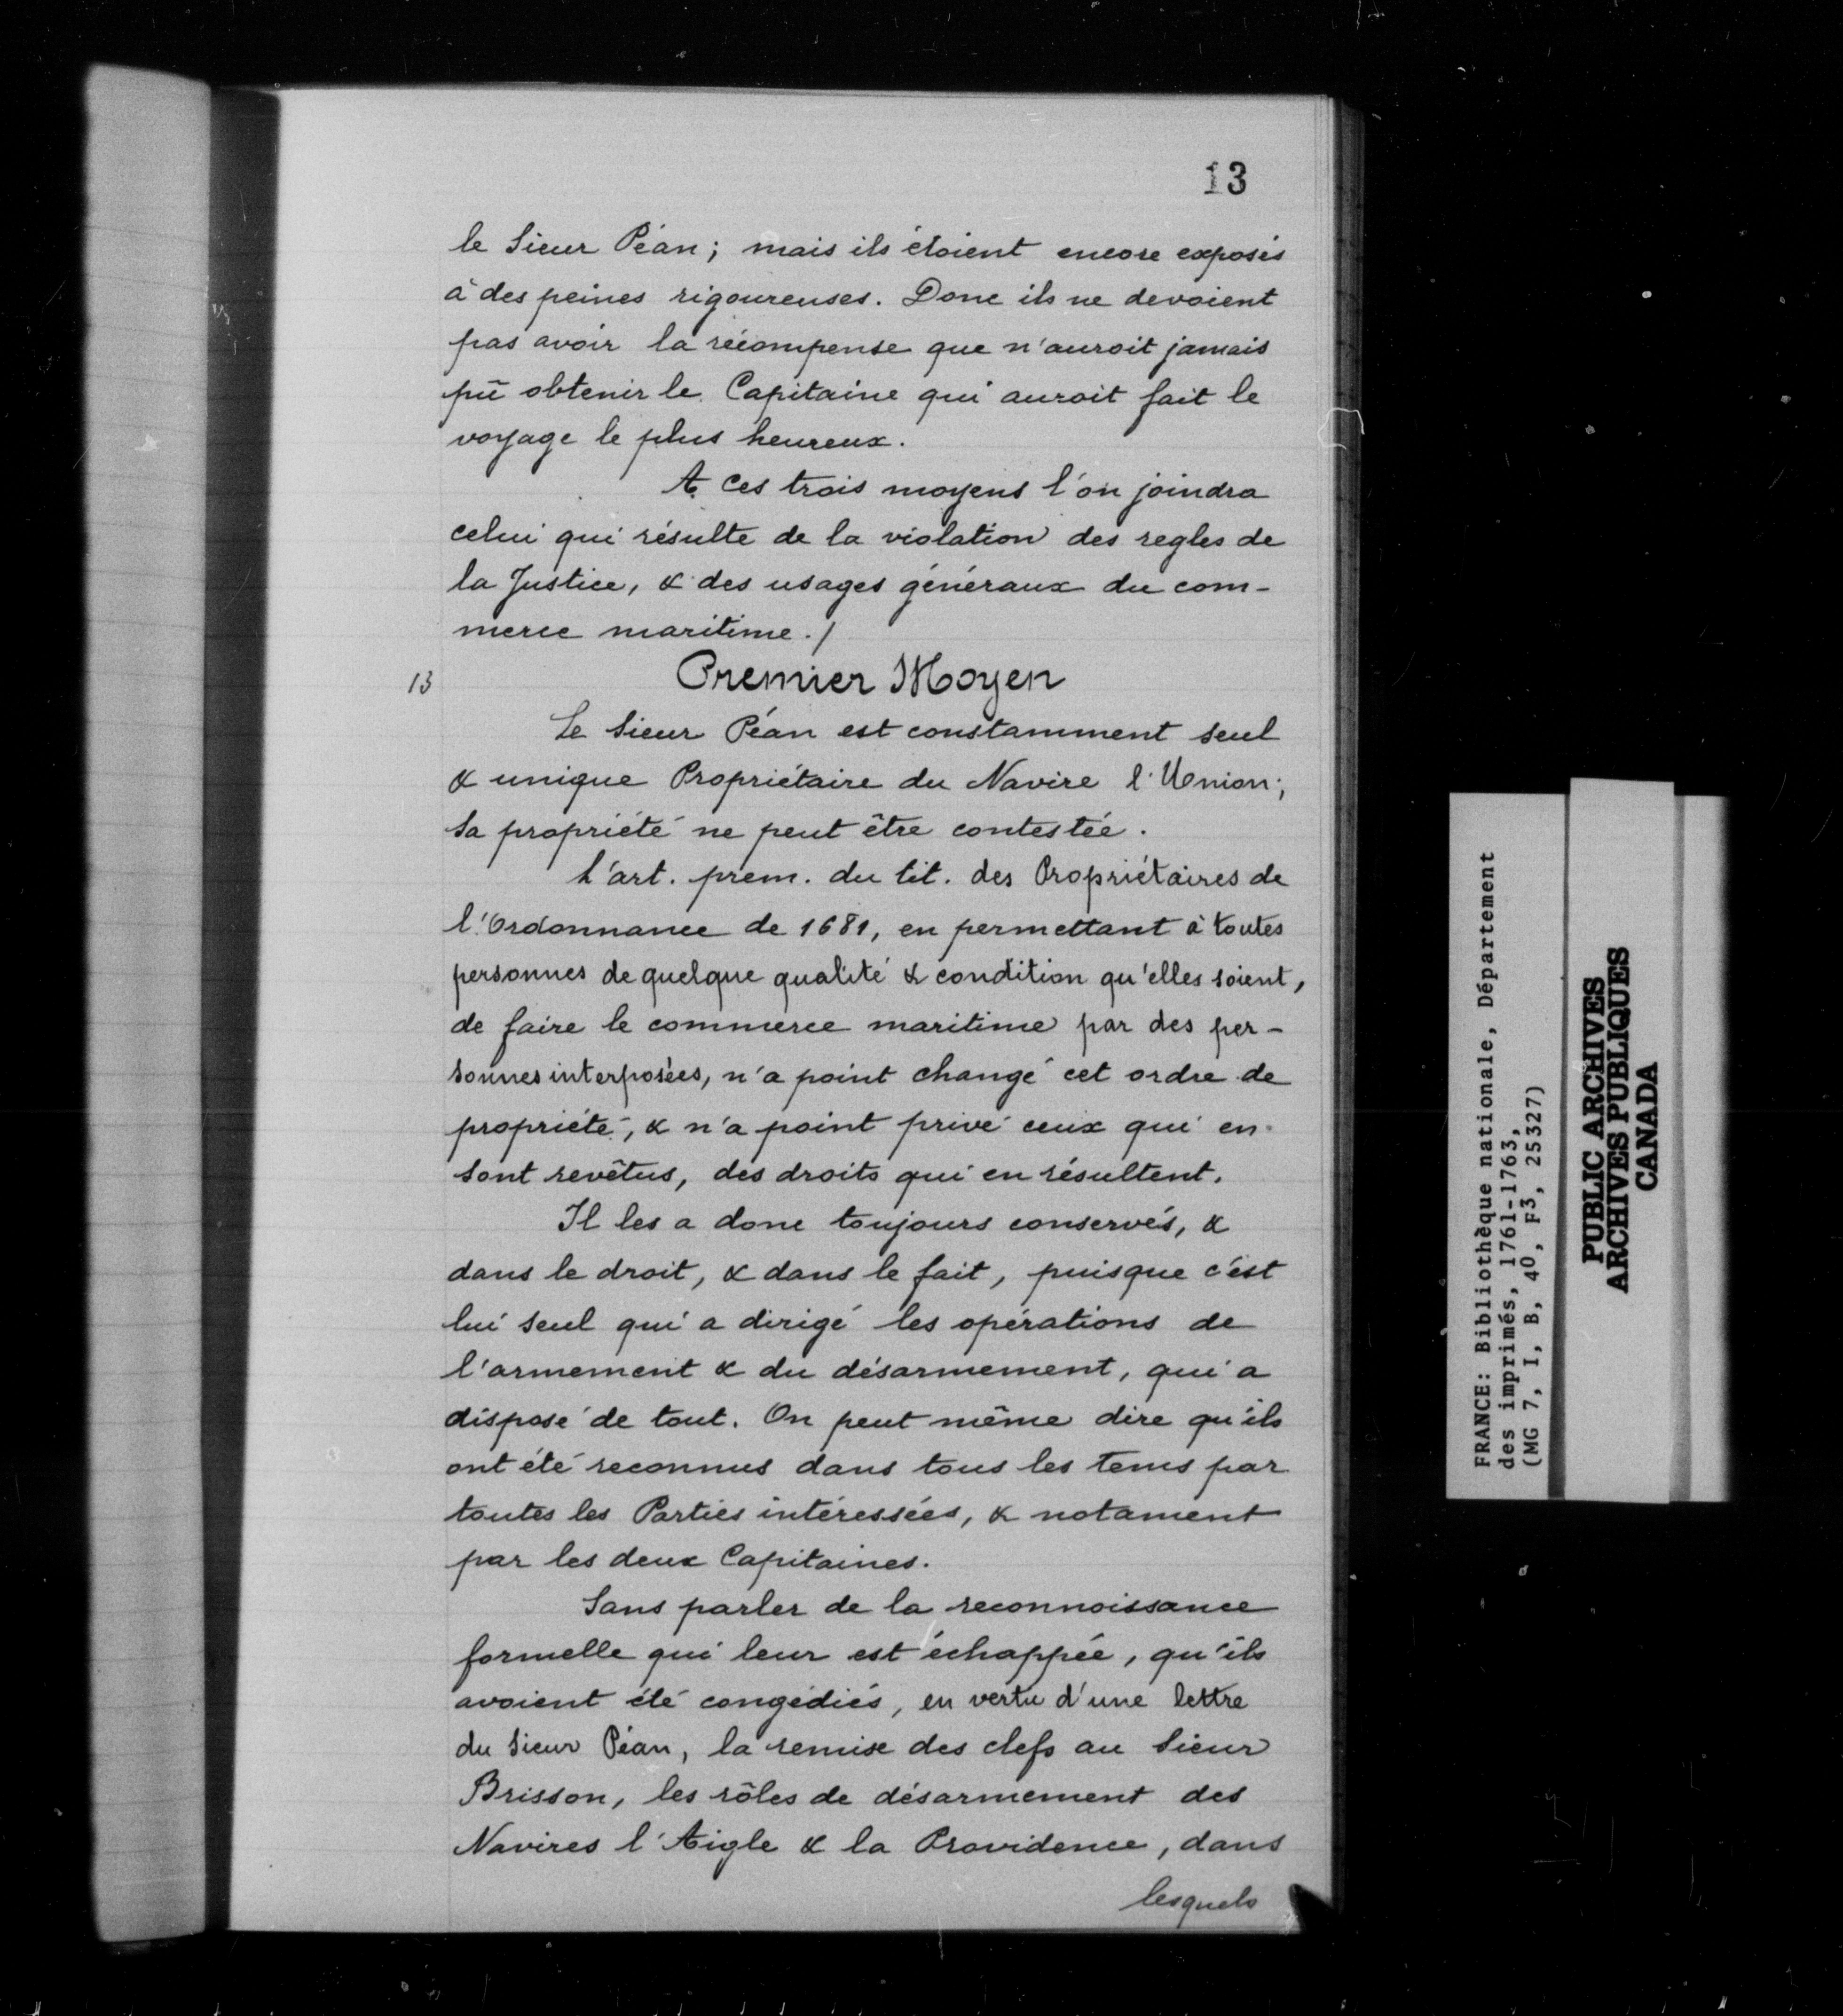 13
le Sieur Péan; mais ils étoient encore exposés
à des peines rigoureuses. Donc ils ne devoient
pas avoir la récompense que n'auroit jamais
pû obtenir le Capitaine qui auroit fait le
voyage le plus heureux.
A ces trois moyens l'on joindra
celui qui résulte de la violation des regles de
la Justice, & des usages généraux du com-
merce maritime./
13 Premier Moyen
Le Sieur Péan est constamment seul
& unique Propriétaire du Navire l'Union;
sa propriété ne peut être contestée.
L'art. prem. du tit. des Propriétaires de
l'Ordonnance de 1681, en permettant à toutes
personnes de quelque qualité & condition qu'elles soient,
de faire le commerce maritime par des per-
sonnes interposées, n'a point changé cet ordre de
propriété, & n'a point privé ceux qui en
sont revêtus, des droits qui en résultent.
Il les a donc toujours conservés, &
dans le droit, & dans le fait, puisque c'est
lui seul qui a dirigé les opérations de
l'armement & du désarmement, qui a
disposé de tout. On peut même dire qu'ils
ont été reconnus dans tous les tems par
toutes les Parties intéressées, & notament
par les deux Capitaines.
Sans parler de la reconnoissance
formelle qui leur est échappée, qu'ils
avoient été congédiés, en vertu d'une lettre
du Sieur Péan, la remise des clefs au Sieur
Brisson, les rôles de désarmement des
Navires l'Aigle & la Providence, dans
lesquels
FRANCE: Bibliothèque nationale, Département
des imprimés, 1761-1763,
(MG 7, I, B, 40, F3, 25327)
PUBLIC ARCHIVES
ARCHIVES PUBLIQUES
CANADA